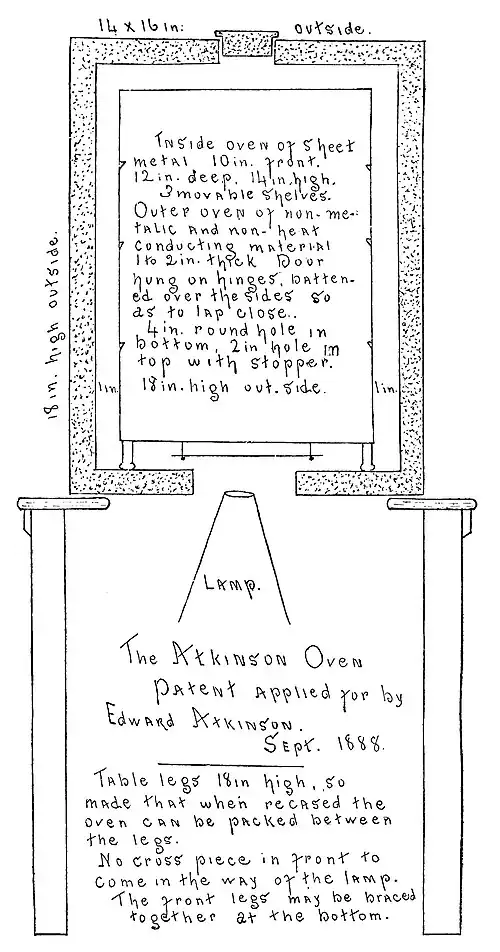 14 x 16 in: outside.
Inside oven of sheet
metal 10 in. front.
12 in. deep, 14 in. high.
3 movable shelves.
Outer oven of non-me-
talic and non-heat
conducting material
1 to 2 in. thick Door
hung on hinges, batten-
ed over the sides so
as to lap close..
4 in. round hole in
bottom, 2 in hole in
top with stopper.
18 in. high out.side.
18 in. high outside.
1 in.
1 in.
Lamp.
The Atkinson Oven
Patent applied for by
Edward Atkinson.
Sept. 1888.
Table legs 18 in high, so
made that when recased the
oven can be packed between
the legs.
No cross piece in front to
come in the way of the lamp.
The front legs may be braced
together at the bottom.